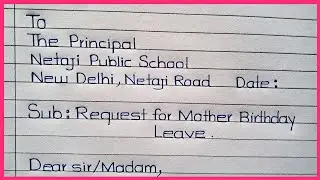 To
The Principal
Netaji Public School
New Delhi, Netaji Road Date:
Sub: Request for Mother Birthday
Leave.
Dear sir/Madam,